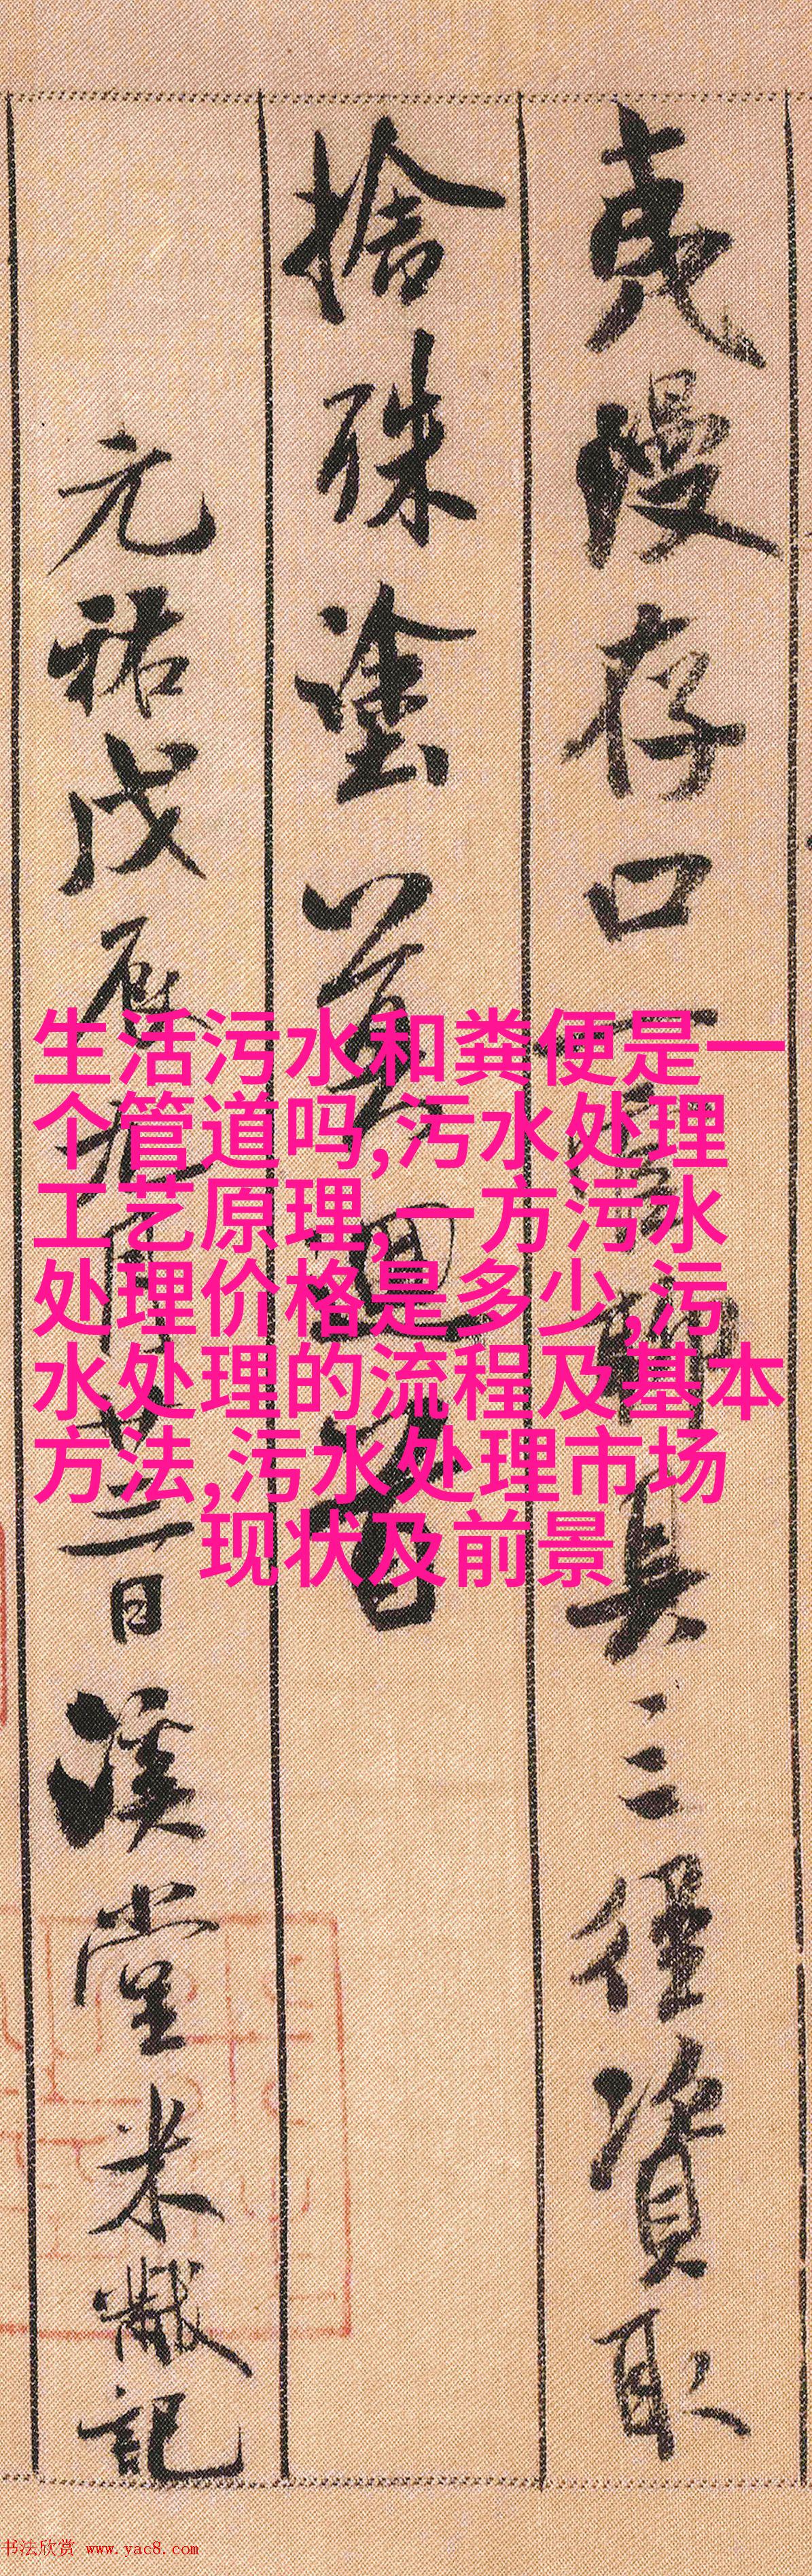 夷漫存口一官聊具三徑資取
捨殊塗莫迴首
元祐戊辰九月廿三日溪堂米黻記
生活污水和粪便是一
个管道吗,污水处理
工艺原理,一方污水
处理价格是多少,污
水处理的流程及基本
方法,污水处理市场
现状及前景
书法欣赏 www.yac8.com